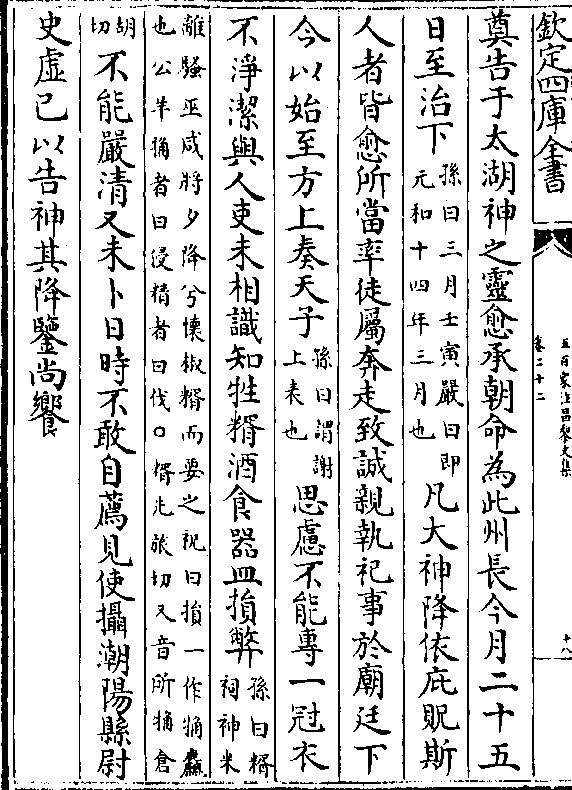 欽定四庫全書
五百家注昌黎文集
卷二十二
十八
奠告于太湖神之靈愈承朝命為此州長今月二十五
日至治下孫曰三月壬寅嚴曰即元和十四年三月也凡大神降依庇貺斯
人者皆愈所當率徒屬奔走致誠親執祀事於廟廷下
今以始至方上奏天子孫曰謂謝上表也思慮不能專一冠衣
不淨潔與人吏未相識知牲糈酒食器皿損弊孫曰糈祠神米
離騷巫咸將夕降兮懷椒糈而要之祝曰損一作觕麤
也公羊觕者曰侵精者曰伐○糈先旅切又音所觕倉
胡切不能嚴清又未卜日時不敢自薦見使攝潮陽縣尉
史虛已以告神其降鑒尚饗